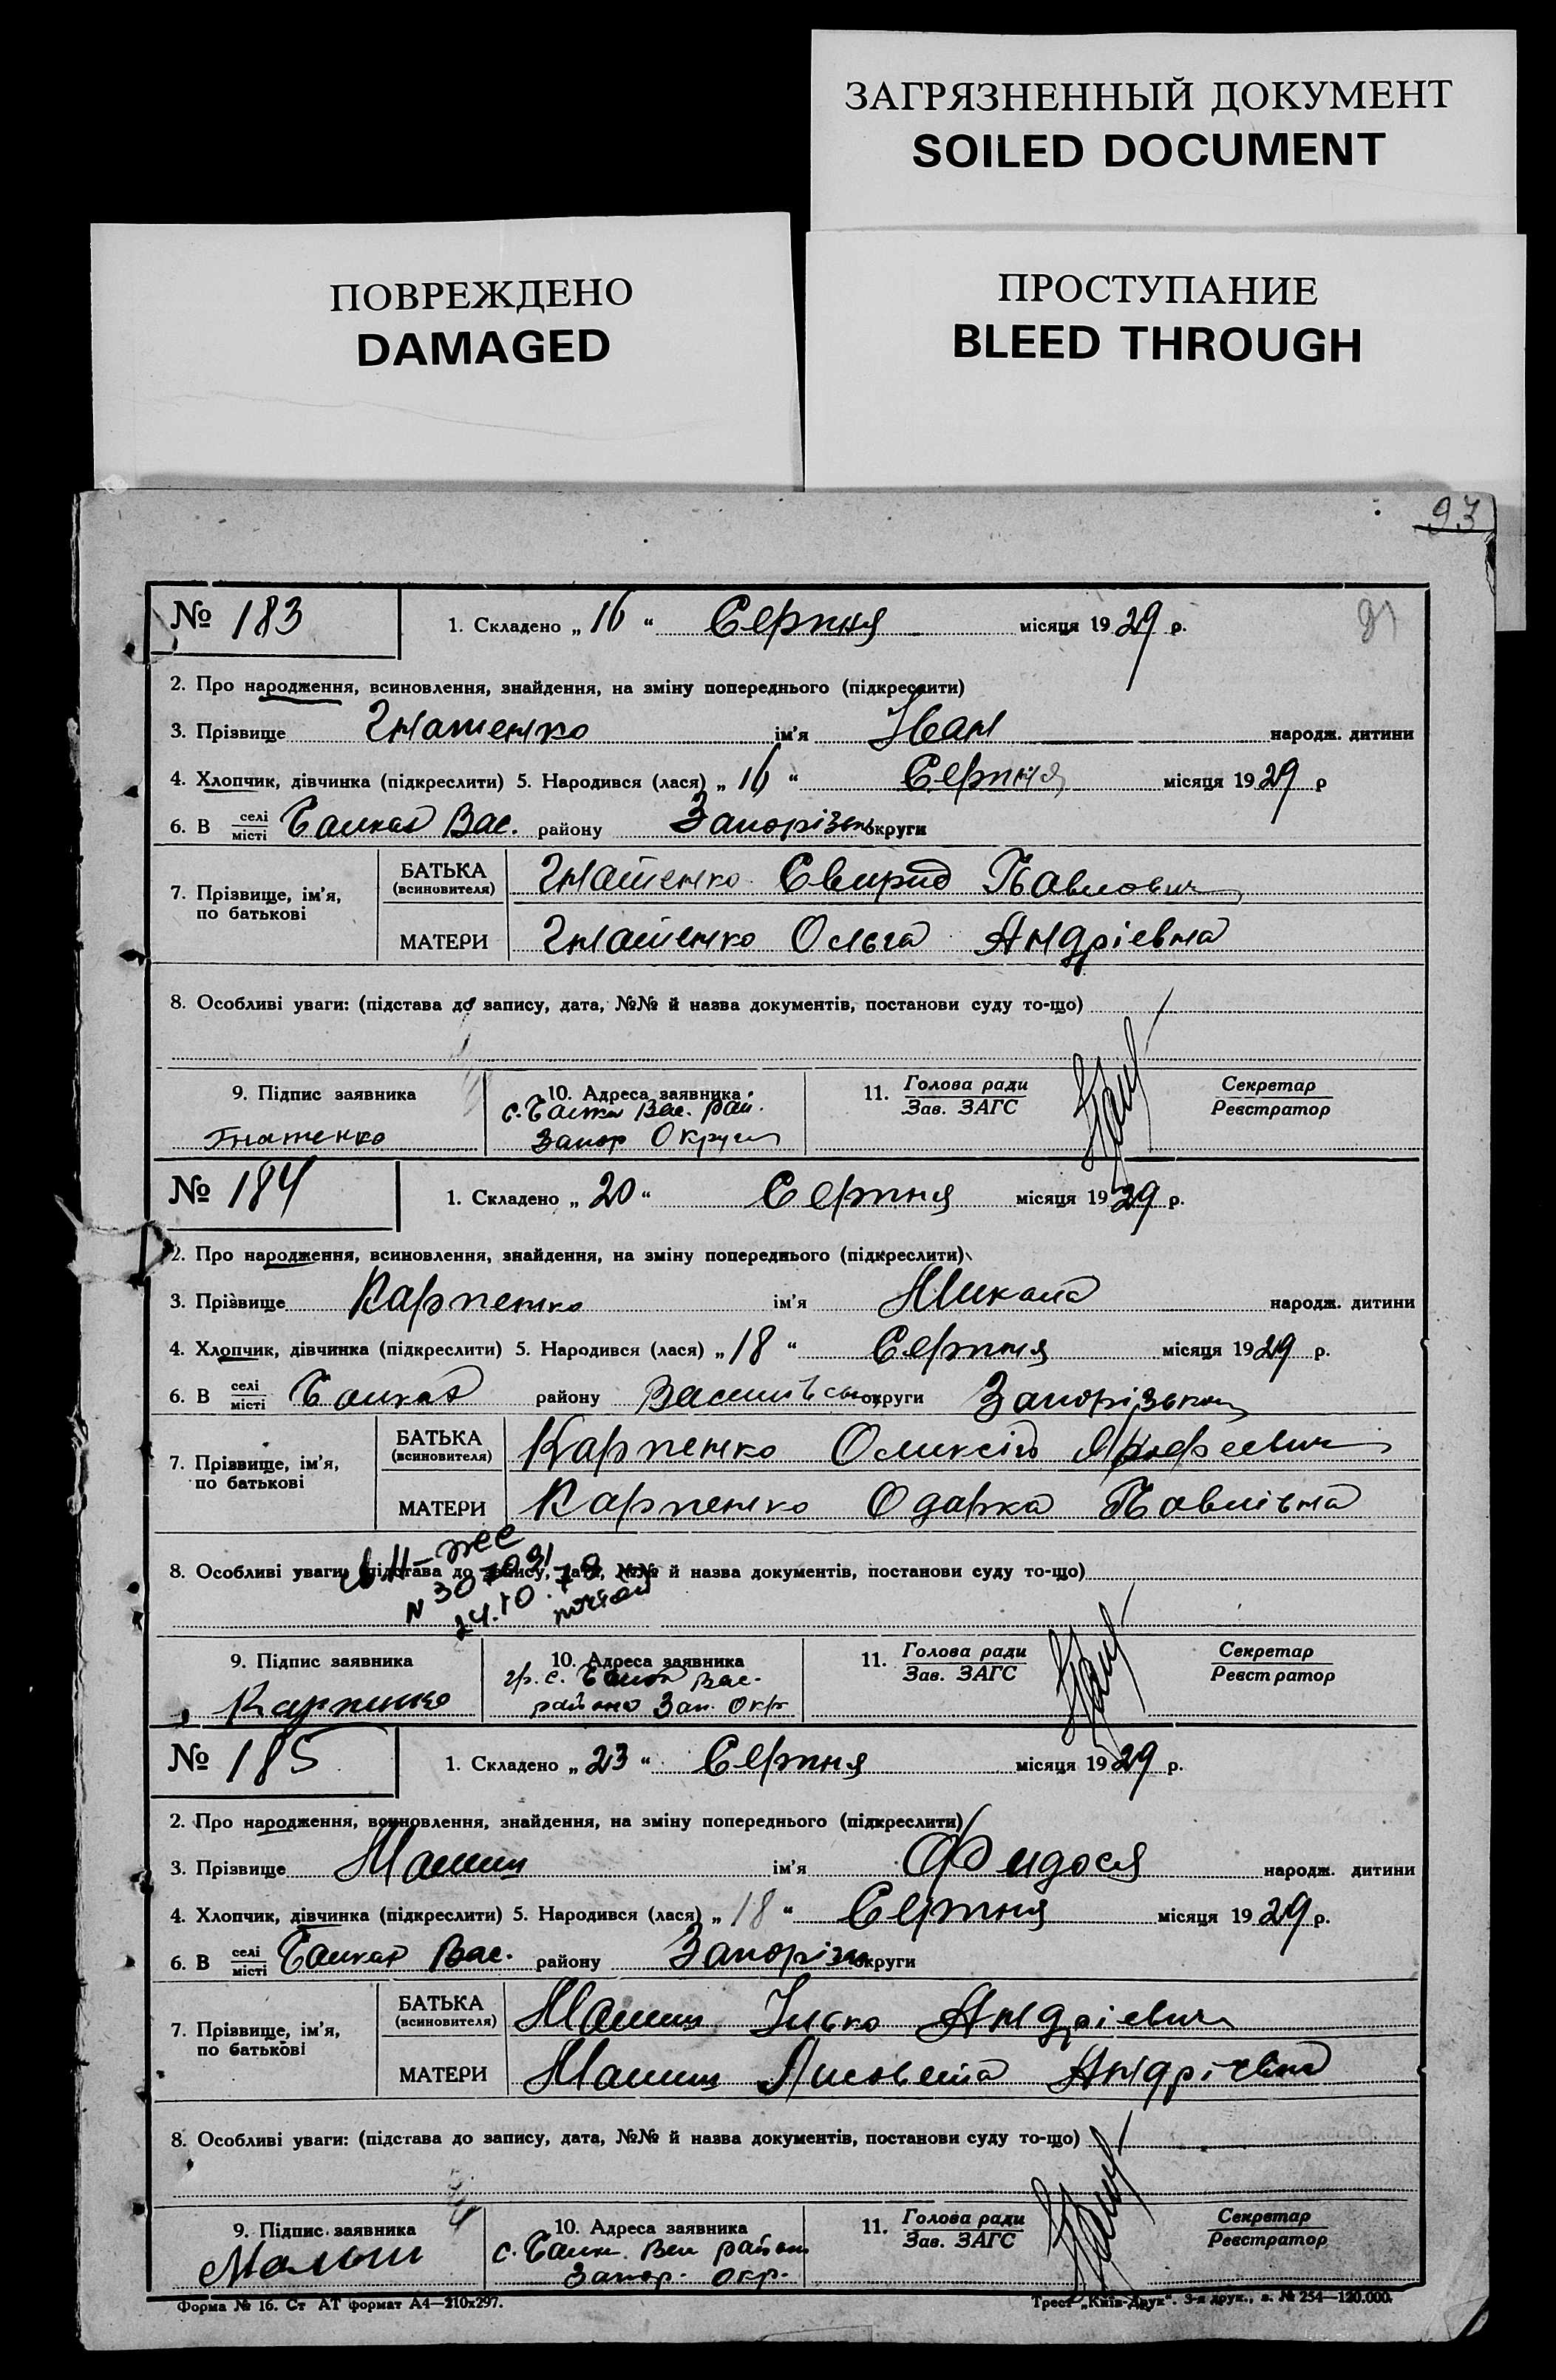 ЗАГРЯЗНЕННЫЙ ДОКУМЕНТ
SOILED DOCUMENT
ПОВРЕЖДЕНО
DAMAGED
ПРОСТУПАНИЕ
BLEED THROUGH
93
№ 183
1. Складено „ 16 “ Серпня місяця 1929 р.
2. Про народження, всиновлення, знайдення, на зміну попереднього (підкреслити)
3. Прізвище Гнатенко ім’я Іван народж. дитини
4. Хлопчик, дівчинка (підкреслити) 5. Народився (лася) „ 16 “ Серпня місяця 1929 р
6. В селі місті Балках Вас. району Запорізьк округи
7. Прізвище, ім’я, по батькові
БАТЬКА (всиновителя) Гнатенко Свирид Павлович
МАТЕРИ Гнатенко Ольга Андрієвна
8. Особливі уваги: (підстава до запису, дата, №№ й назва документів, постанови суду то-що)
9. Підпис заявника
10. Адреса заявника
11. Голова ради Зав. ЗАГС
Секретар Реєстратор
Гнатенко
с. Балки Вас. рай.
Запор Округи
№ 184
1. Складено „ 20 “ Серпня місяця 1929 р.
2. Про народження, всиновлення, знайдення, на зміну попереднього (підкреслити)
3. Прізвище Карпенко ім’я Микола народж. дитини
4. Хлопчик, дівчинка (підкреслити) 5. Народився (лася) „ 18 “ Серпня місяця 1929 р.
6. В селі місті Балках району Василівськ округи Запорізької
7. Прізвище, ім’я, по батькові
БАТЬКА (всиновителя) Карпенко Олексій
МАТЕРИ Карпенко Одарка Павлівна
8. Особливі уваги: (підстава до запису, дата, №№ й назва документів, постанови суду то-що)
24.10.79
9. Підпис заявника
10. Адреса заявника
11. Голова ради Зав. ЗАГС
Секретар Реєстратор
Карпенко
гр. с. Балок Вас.
району Зап. Окр
№ 185
1. Складено „ 23 “ Серпня місяця 1929 р.
2. Про народження, всиновлення, знайдення, на зміну попереднього (підкреслити)
3. Прізвище Малиш ім’я Фидося народж. дитини
4. Хлопчик, дівчинка (підкреслити) 5. Народився (лася) „ 18 “ Серпня місяця 1929 р.
6. В селі місті Балках Вас. району Запорізьк округи
7. Прізвище, ім’я, по батькові
БАТЬКА (всиновителя) Малиш Ілько Андрієвич
МАТЕРИ Малиш Андрієвна
8. Особливі уваги: (підстава до запису, дата, №№ й назва документів, постанови суду то-що)
9. Підпис заявника
10. Адреса заявника
11. Голова ради Зав. ЗАГС
Секретар Реєстратор
Малыш
с. Балк. Вас район
Запор. окр.
Форма № 16. Ст АТ формат А4—210х297.
Трест „Київ-Друк“. 3-я друк., з. № 254—120.000.